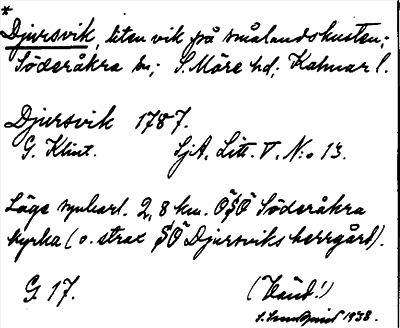 *
Djursvik, liten vik på smålandskusten;
Söderåkra sn; S. Möre hd; Kalmar l.
Djursvik 1787.
G. Klint. SjA. Litt. V. N:o 13.
Läge synbarl. 2,8 km. ÖSÖ Söderåkra
kyrka (o. strax SÖ Djursviks herrgård).
G. 17. (Vänd!)
1938.